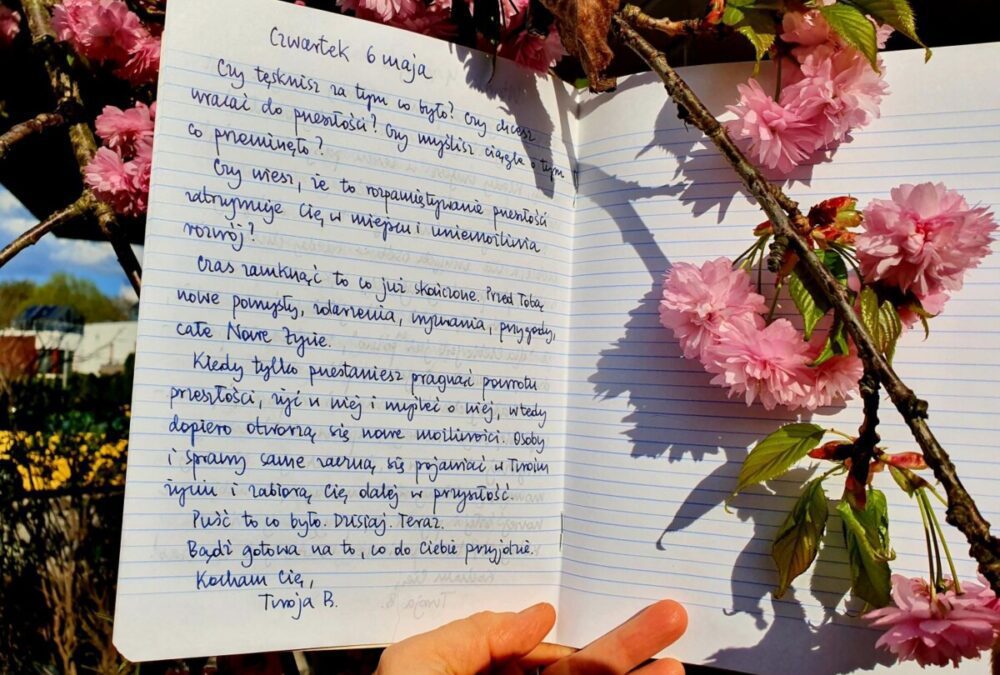 Czwartek 6 maja
Czy tęsknisz za tym co było? Czy chcesz
wracać do przeszłości? Czy myślisz ciągle o tym
co przeminęło?
Czy wiesz, że to rozpamiętywanie przeszłości
zatrzymuje Cię w miejscu i uniemożliwia
rozwój?
Czas zamknąć to co już skończone. Przed Tobą
nowe pomysły, zdarzenia, wyzwania, przygody,
całe Nowe Życie.
Kiedy tylko przestaniesz pragnąć powrotu
przeszłości, żyć w niej i myśleć o niej, wtedy
dopiero otworzą się nowe możliwości. Osoby
i sprawy same zaczną się pojawiać w Twoim
życiu i zabiorą Cię dalej w przyszłość.
Puść to co było. Dzisiaj. Teraz.
Bądź gotowa na to, co do Ciebie przyjdzie.
Kocham Cię,
Twoja B.